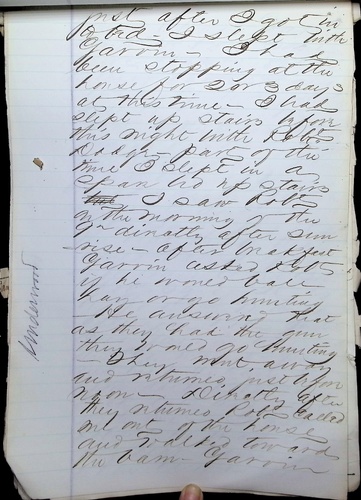 just after I got in
bed - I slept with
Garvin - I had
been stopping at the
house for 2 or 3 days
at this time - I had
slept up stairs before
this night with Robt
Dodge - part of the
time I slept in a
spare bed up stairs
I saw Robt
on the morning of the
9th directly after sun
rise - after breakfast
Garvin asked Robt
if he would bale
hay or go hunting
He answered that
as they had the gun
they would go hunting
They went away
and returned just before
noon - Directly after
they returned Robt called
me out of the house
and walked toward
the barn - Garvin
Underwood